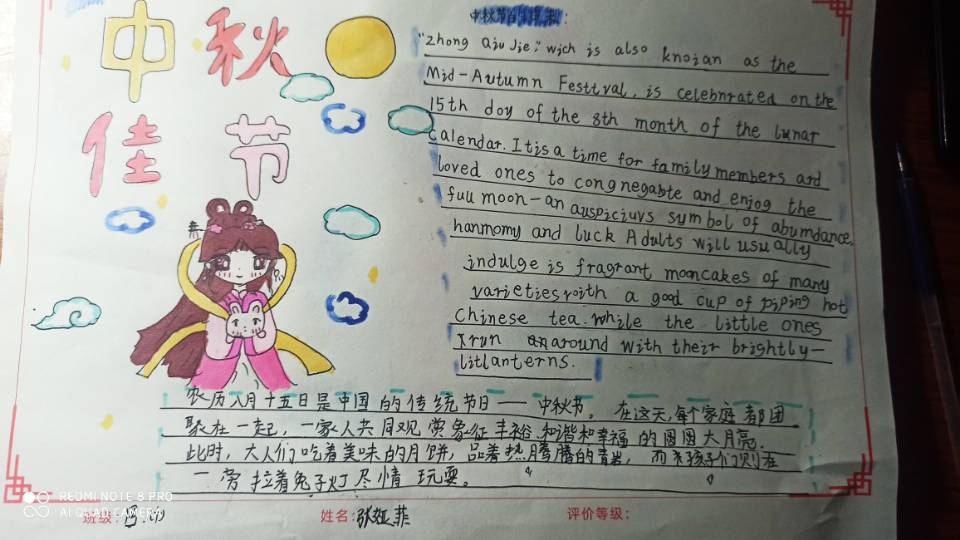 中秋
佳节
中秋节的
"Zhong qiu Jie", wich is also knojan as the
Mid-Autumn Festtval, is celebnrated on the
15th doy of the 8th month of the lunar
calendar. It is a time for family members and
loved ones to congnegabte and enjog the
fuu moon-an auspiciuvs symbol of abumdance,
hanmomy and luck Adults will usually
indulge is fragrant mooncakes of many
varieties with a good cup of piping hot
Chinese tea. while the little ones
run around with their brightly-
litlanterns.
农历八月十五日是中国的传统节日——中秋节。在这天,每个家庭都团
聚在一起,一家人共同观赏象征丰裕、和谐和幸福的圆圆大月亮.
此时,大人们吃着美味的月饼,品着热腾腾的 而 孩子们则在
一旁拉着兔子灯尽情玩耍。
REDMI NOTE 8 PRO
AI QUAD CAMERA
班级:
姓名:张 菲
评价等级: